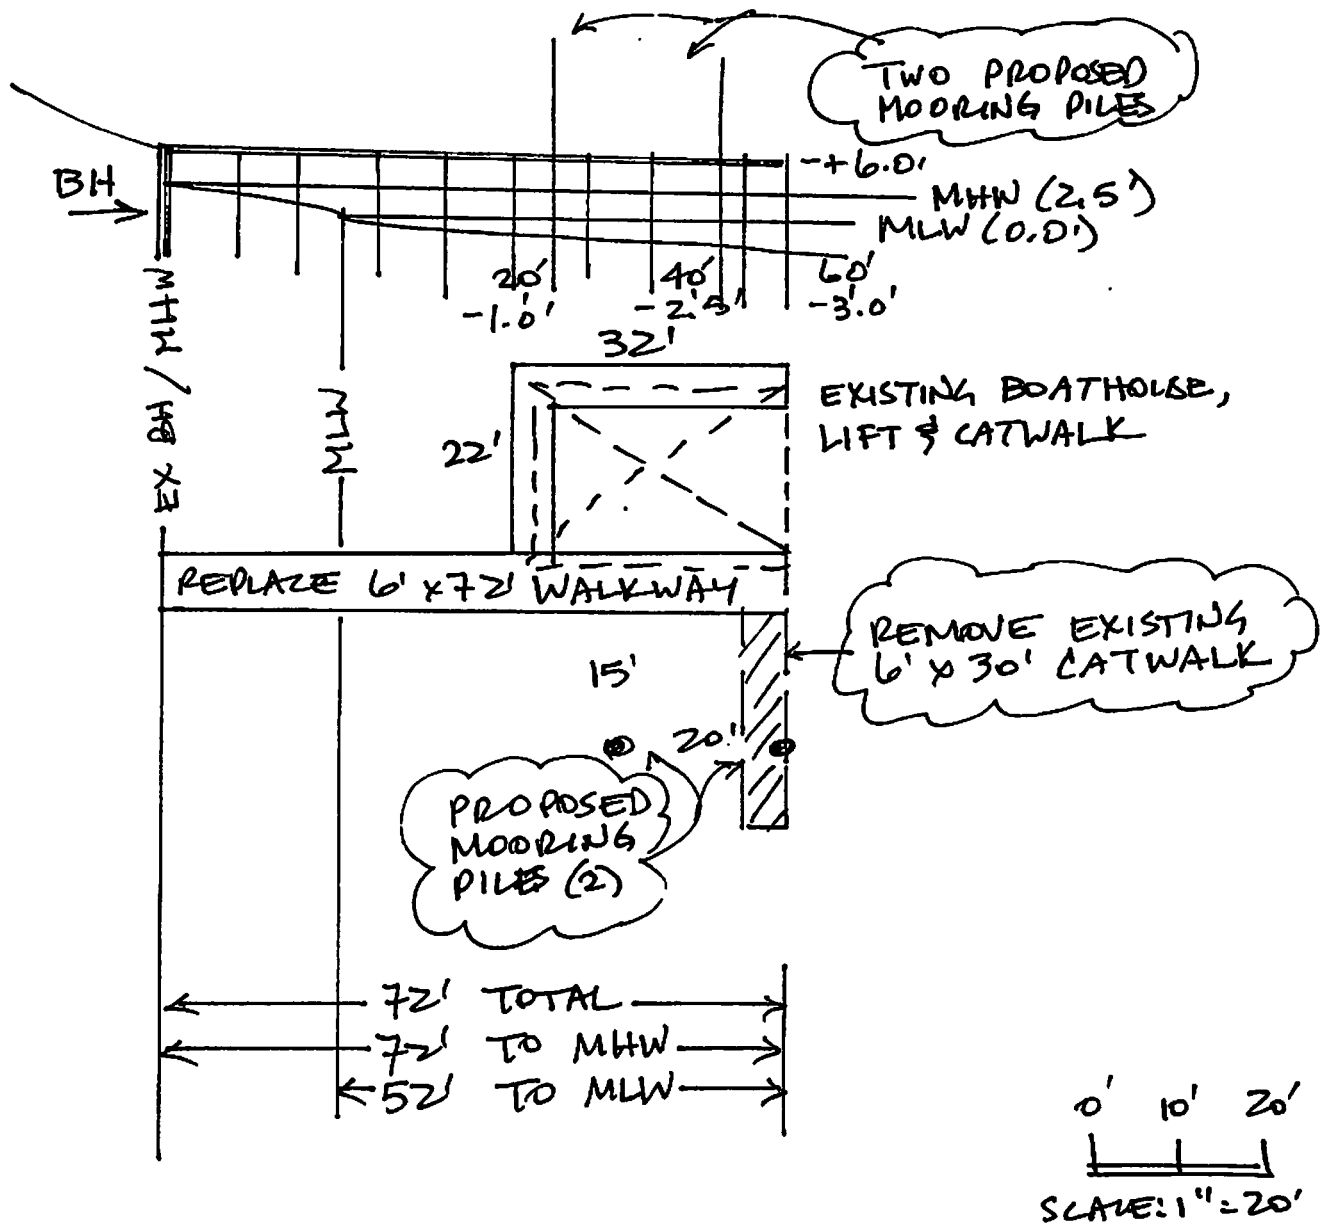 TWO PROPOSED
MOORING PILES
+6.0'
BH
MHW (2.5')
MLW (0.0')
20'
-1.0'
40'
-2.5'
60'
-3.0'
EX BH / MHW
MLW
32'
22'
EXISTING BOATHOUSE,
LIFT & CATWALK
REPLACE 6' x 72' WALKWAY
REMOVE EXISTING
6' x 30' CATWALK
15'
20'
PROPOSED
MOORING
PILES (2)
72' TOTAL
72' TO MHW
52' TO MLW
0' 10' 20'
SCALE: 1" = 20'